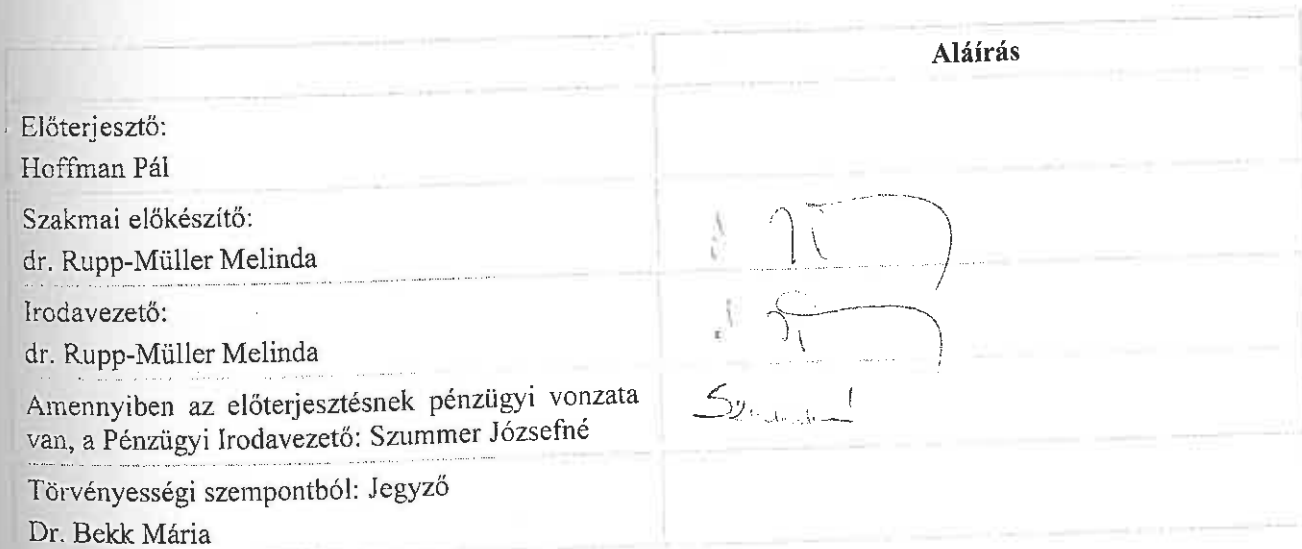 Aláírás
Előterjesztő:
Hoffman Pál
Szakmai előkészítő:
dr. Rupp-Müller Melinda
Irodavezető:
dr. Rupp-Müller Melinda
Amennyiben az előterjesztésnek pénzügyi vonzata
van, a Pénzügyi Irodavezető: Szummer Józsefné
Törvényességi szempontból: Jegyző
Dr. Bekk Mária